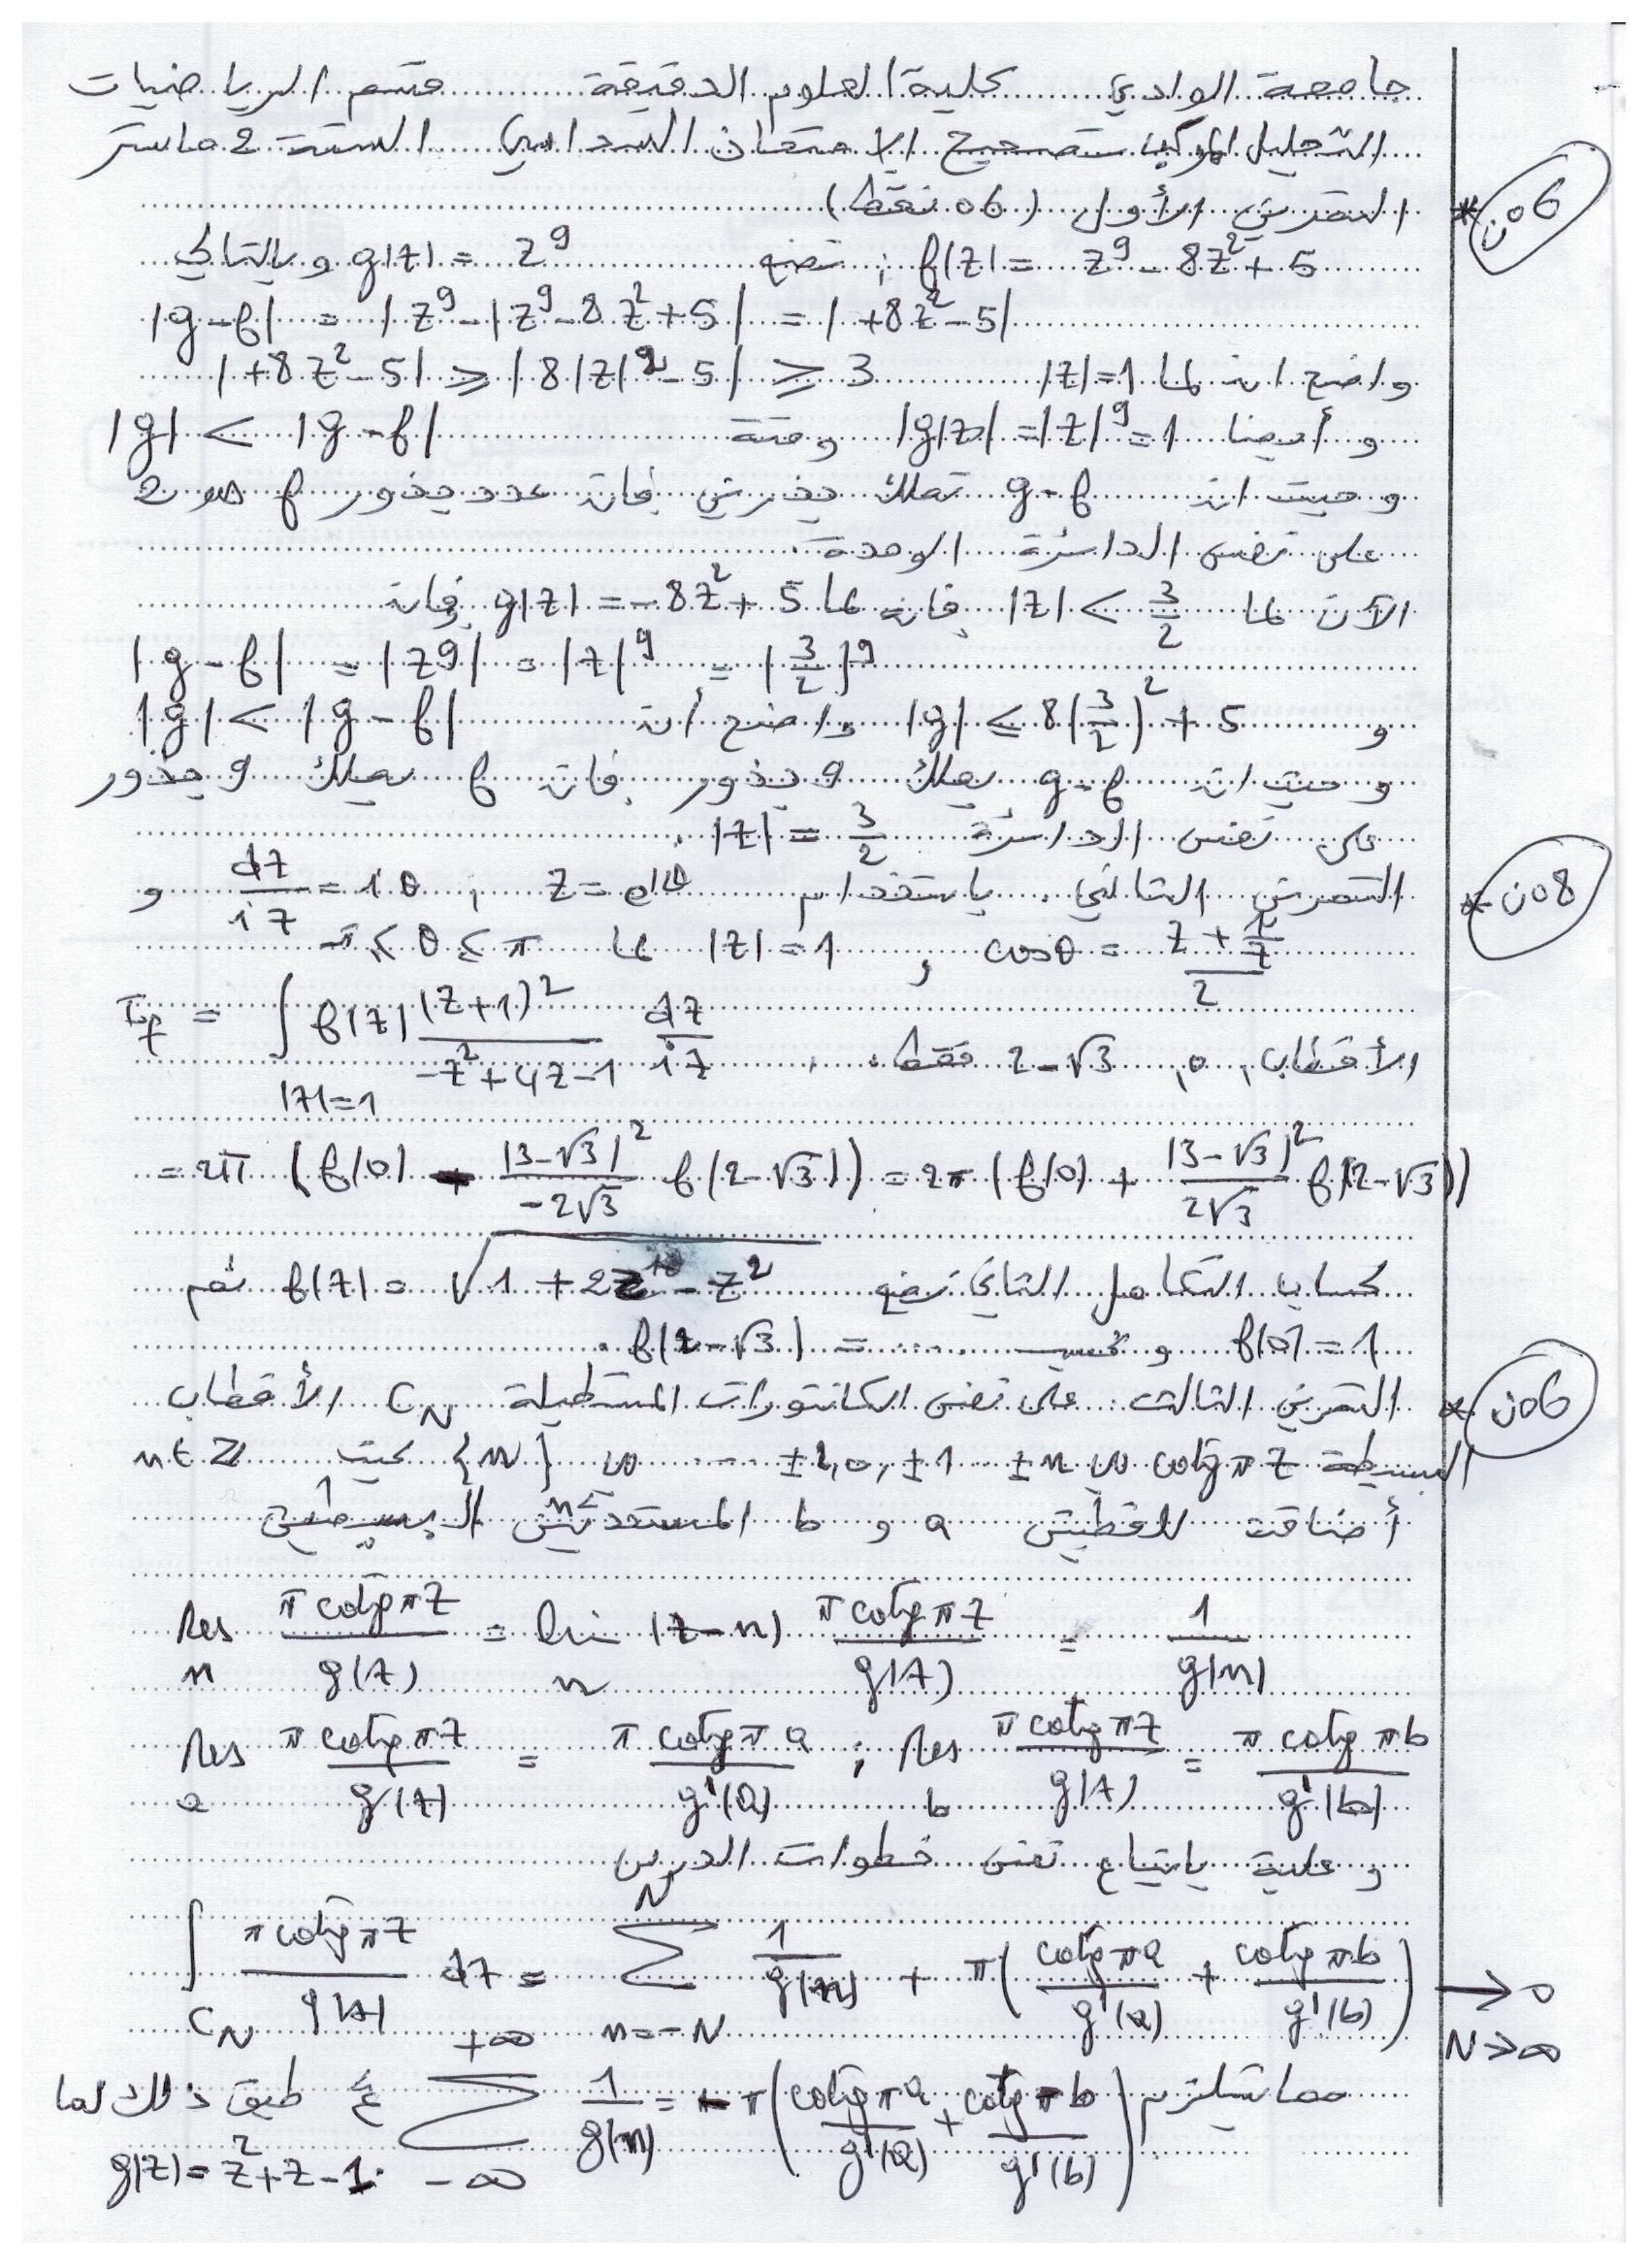 جامعة الوادي كلية العلوم الدقيقة قسم الرياضيات
التحليل المركب تصحيح الامتحان السداسي السنة 2 ماستر
التمرين الأول (06 نقط) * 06ن
f(z) = z^9 - 8z^2 + 5 ; نضع g(z) = z^9 وبالتالي
|g-f| = |z^9 - (z^9 - 8z^2 + 5| = |+8z^2 - 5|
واضح انه لما |z|=1 |+8z^2-5| ≥ |8|z|^2-5| ≥ 3
و أيضا |g(z)| = |z|^9 = 1 ومنه |g| < |g-f|
و حيث ان g-f تملك جذرين فان عدد جذور f هو 2
على نفس الدائرة الوحدة.
الآن لما |z| < 3/2 فانه لما g(z) = -8z^2 + 5 فان
|g-f| = |z^9| = |z|^9 = (3/2)^9
و |g| ≤ 8(3/2)^2 + 5 واضح أن |g| < |g-f|
و حيث ان g-f يملك 9 جذور فان f يملك 9 جذور
على نفس الدائرة |z| = 3/2.
التمرين الثاني باستخدام z = e^{iθ} , dθ = dz/iz و * 08ن
cosθ = (z + 1/z)/2 , |z| = 1 لما -π ≤ θ ≤ π
I_f = ∫_{|z|=1} f(z) (z+1)^2/(-z^2+4z-1) dz/iz الأقطاب 0, 2-√3 فقط.
= 2π (f(0) + (3-√3)^2/(-2√3) f(2-√3)) = 2π (f(0) + (3-√3)^2/(2√3) f(2-√3))
لحساب التكامل الثاني نضع f(z) = √(1 + 2z^10 - z^2) ثم
f(0) = 1 و نحسب f(2-√3) = ........
التمرين الثالث: على نفس الكانتورات المستطيلة C_N الأقطاب * 06ن
البسيطة cotg πz لـ ±n ... ±1, 0, ±2 ... {n} بحيث n ∈ ℤ
أضافت للقطبين a و b
Res_n π cotg πz / g(z) = lim_n (z-n) π cotg πz / g(z) = 1/g(n)
Res_a π cotg πz / g(z) = π cotg π a / g'(a) ; Res_b π cotg πz / g(z) = π cotg πb / g'(b)
و عليه باتباع نفس خطوات الدرس
∫_{C_N} π cotg πz / g(z) dz = Σ_{n=-N}^{N} 1/g(n) + π( cotg πa / g'(a) + cotg πb / g'(b) ) → 0 N→∞
مما يستلزم Σ_{-∞}^{+∞} 1/g(n) = -π( cotg πa / g'(a) + cotg πb / g'(b) ) طبق ذلك لما
g(z) = z^2 + z - 1.